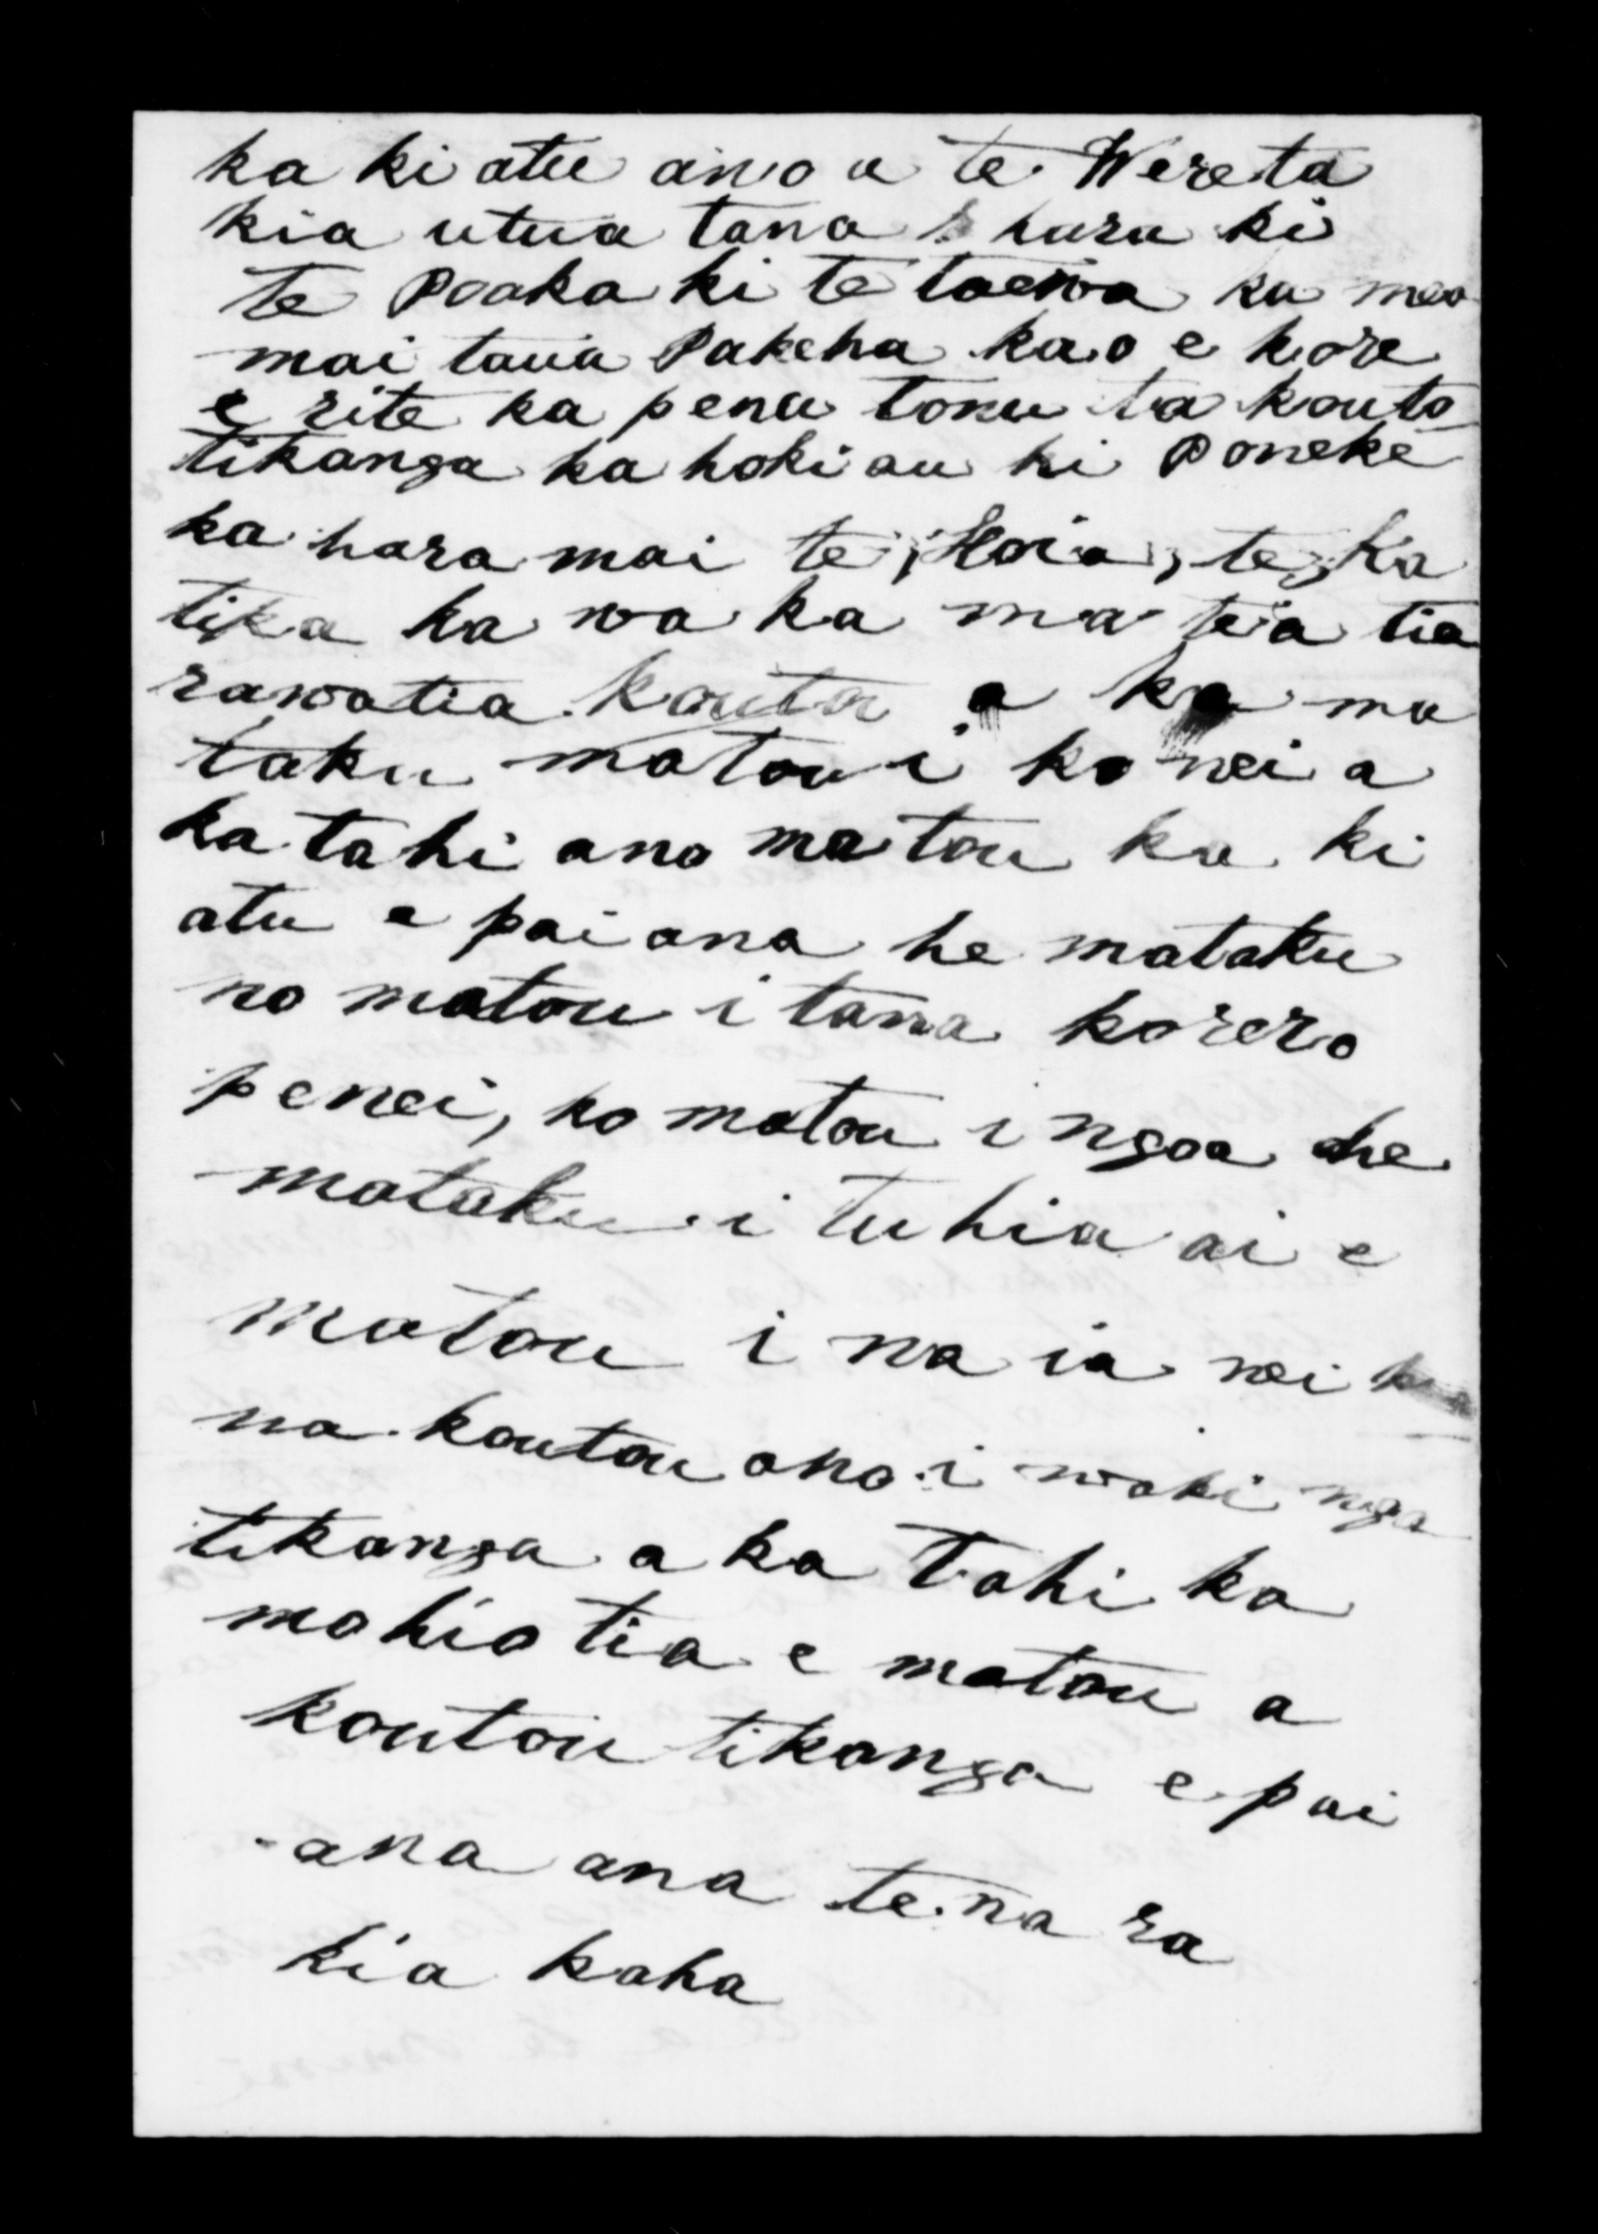 ka ki atu ano a te Wereta
kia utua tana hara ki
te Poaka ki te taewa ka mea
mai taua Pakeha kao e kore
e rite ka pena tonu ta kouto
tikanga ka hoki au ki Poneke
ka hara mai te Hoia, te, Ka
tika ka wa ka ma te a tia
rawatia koutou a ka ma
taku matou i ko nei a
ka tahi ano matou ka ki
atu e pai ana he mataku
no matou i tana korero
penei, ko matou i ngaa he
mataku i tu hia ai e
matou i na ia nei
na koutou ano i waki nga
tikanga a ka tahi ka
mohio tia e matou a
koutou tikanga e pai
ana ana te na ra
kia kaha